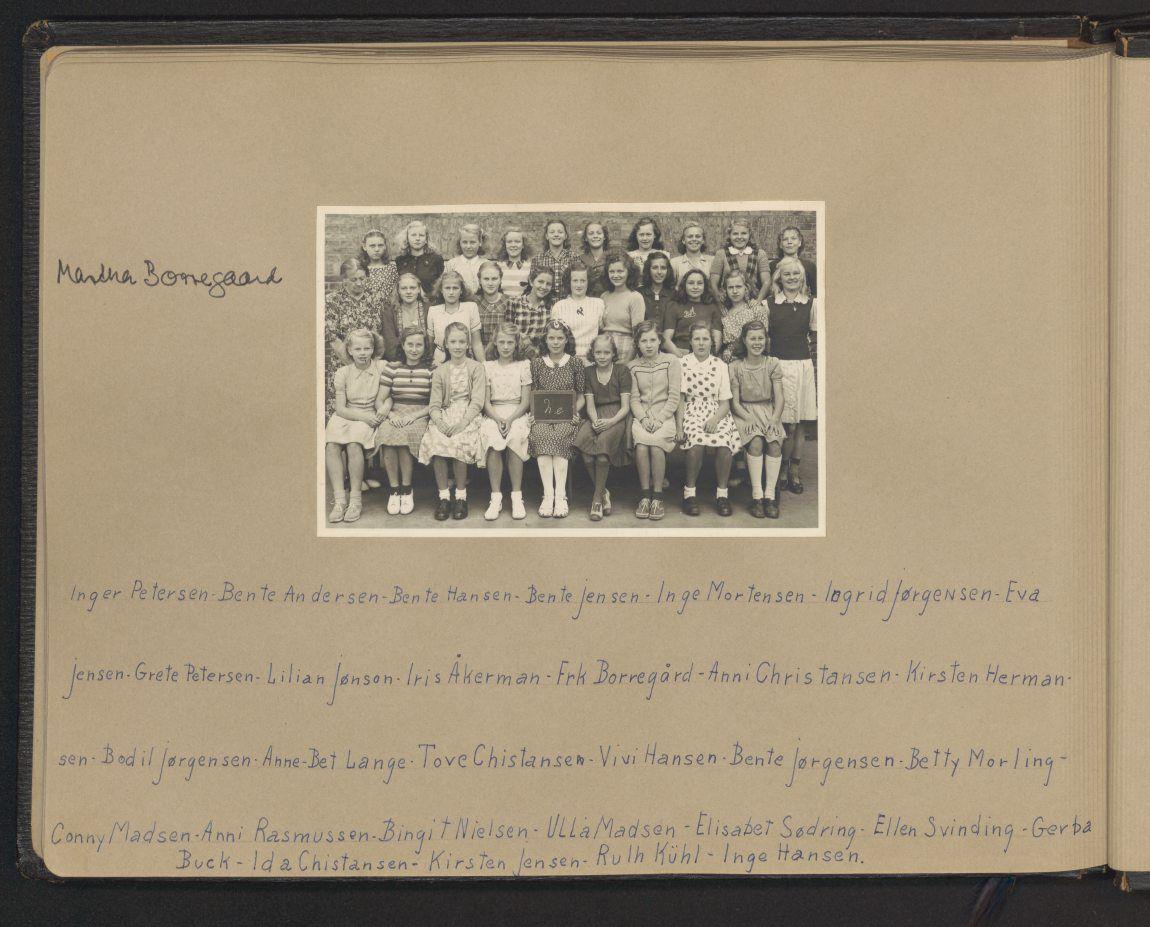 Martha Borregaard
Inger Petersen - Bente Andersen - Bente Hansen - Bente Jensen - Inge Mortensen - Ingrid Jørgensen - Eva
Jensen - Grete Petersen - Lilian Jønson - Iris Åkerman - Frk Borregård - Anni Christansen - Kirsten Herman-
sen - Bodil Jørgensen - Anne-Bet Lange - Tove Chistansen - Vivi Hansen - Bente Jørgensen - Betty Morling -
Conny Madsen - Anni Rasmussen - Bingit Nielsen - Ulla Madsen - Elisabet Sødring - Ellen Svinding - Gerba
Buck - Ida Chistansen - Kirsten Jensen - Ruth Kühl - Inge Hansen.